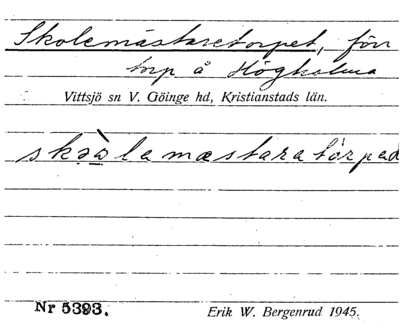 Skolemästaretorpet, förr
torp å Högholma
Vittsjö sn V. Göinge hd, Kristianstads län.
skəàlamæstaratòrpəd
Nr 5393.
Erik W. Bergenrud 1945.